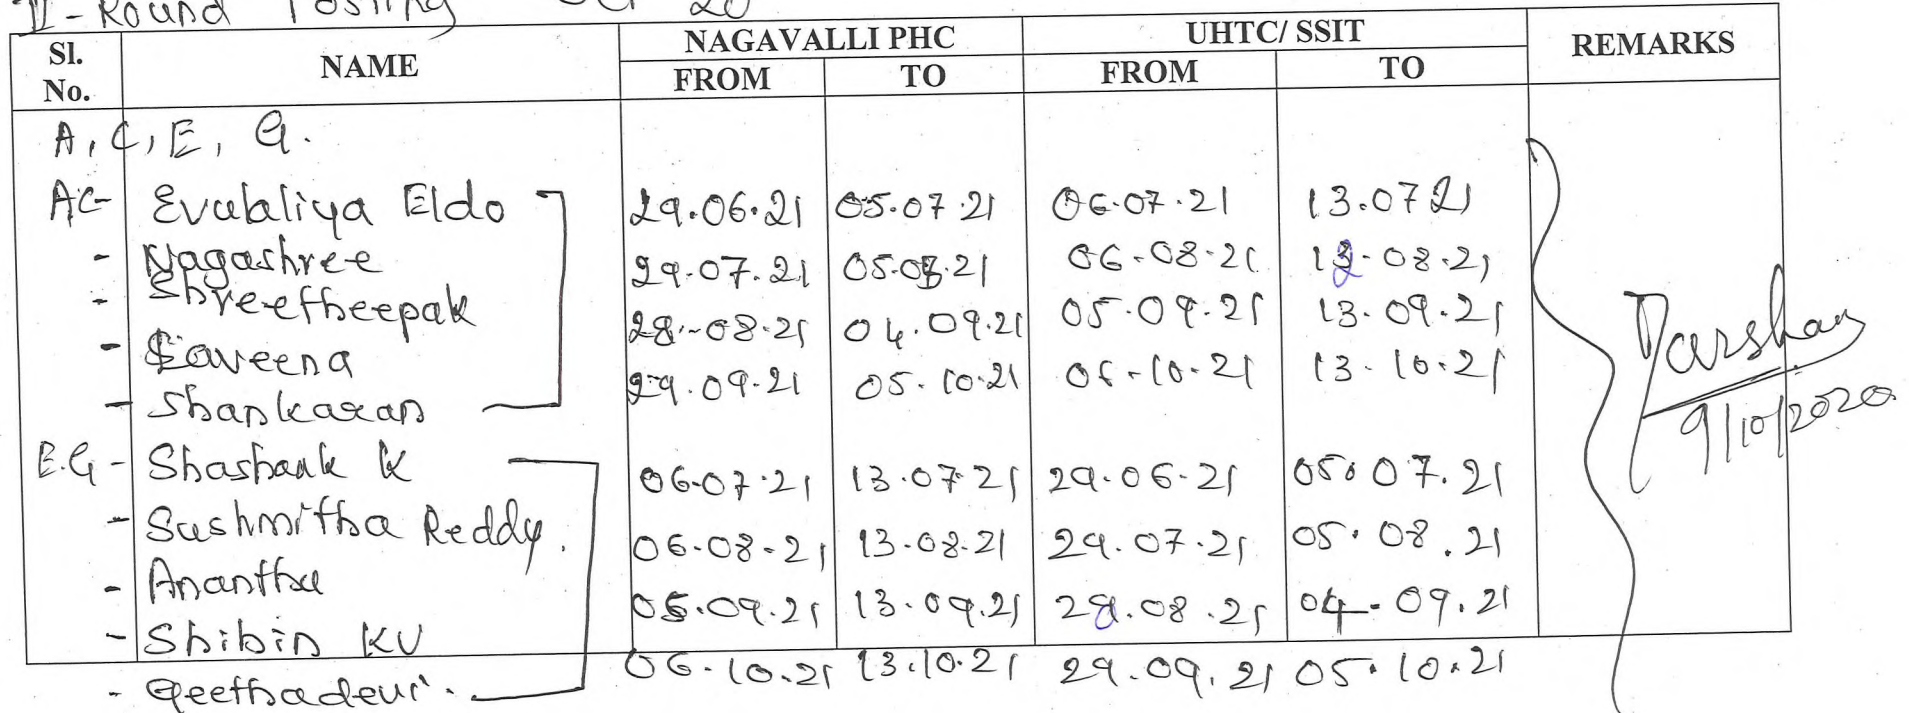 II - Round Posting Oct 20
Sl. No. NAME NAGAVALLI PHC UHTC/ SSIT REMARKS
FROM TO FROM TO
A, C, E, G.
AC- Evulaliya Eldo 29.06.21 05.07.21 06.07.21 13.0721
- Nagashree 29.07.21 05.08.21 06-08-21 13-08-21
- Shreetheepak 28-08-21 04.09.21 05-09-21 13-09-21
- Laveena 29.09-21 05-10-21 06-10-21 13-10-21
- Shankaran
E.G - Shashank K 06-07-21 13.07.21 29.06-21 05.07.21
- Sushmitha Reddy. 06-08-21 13-08-21 29.07.21 05.08.21
- Ananthu 05.09.21 13.09.21 28.08.21 04-09.21
- Shibin KV 06-10-21 13.10.21 29.09.21 05.10.21
- Geethadevi.
Darshan
9/10/2020